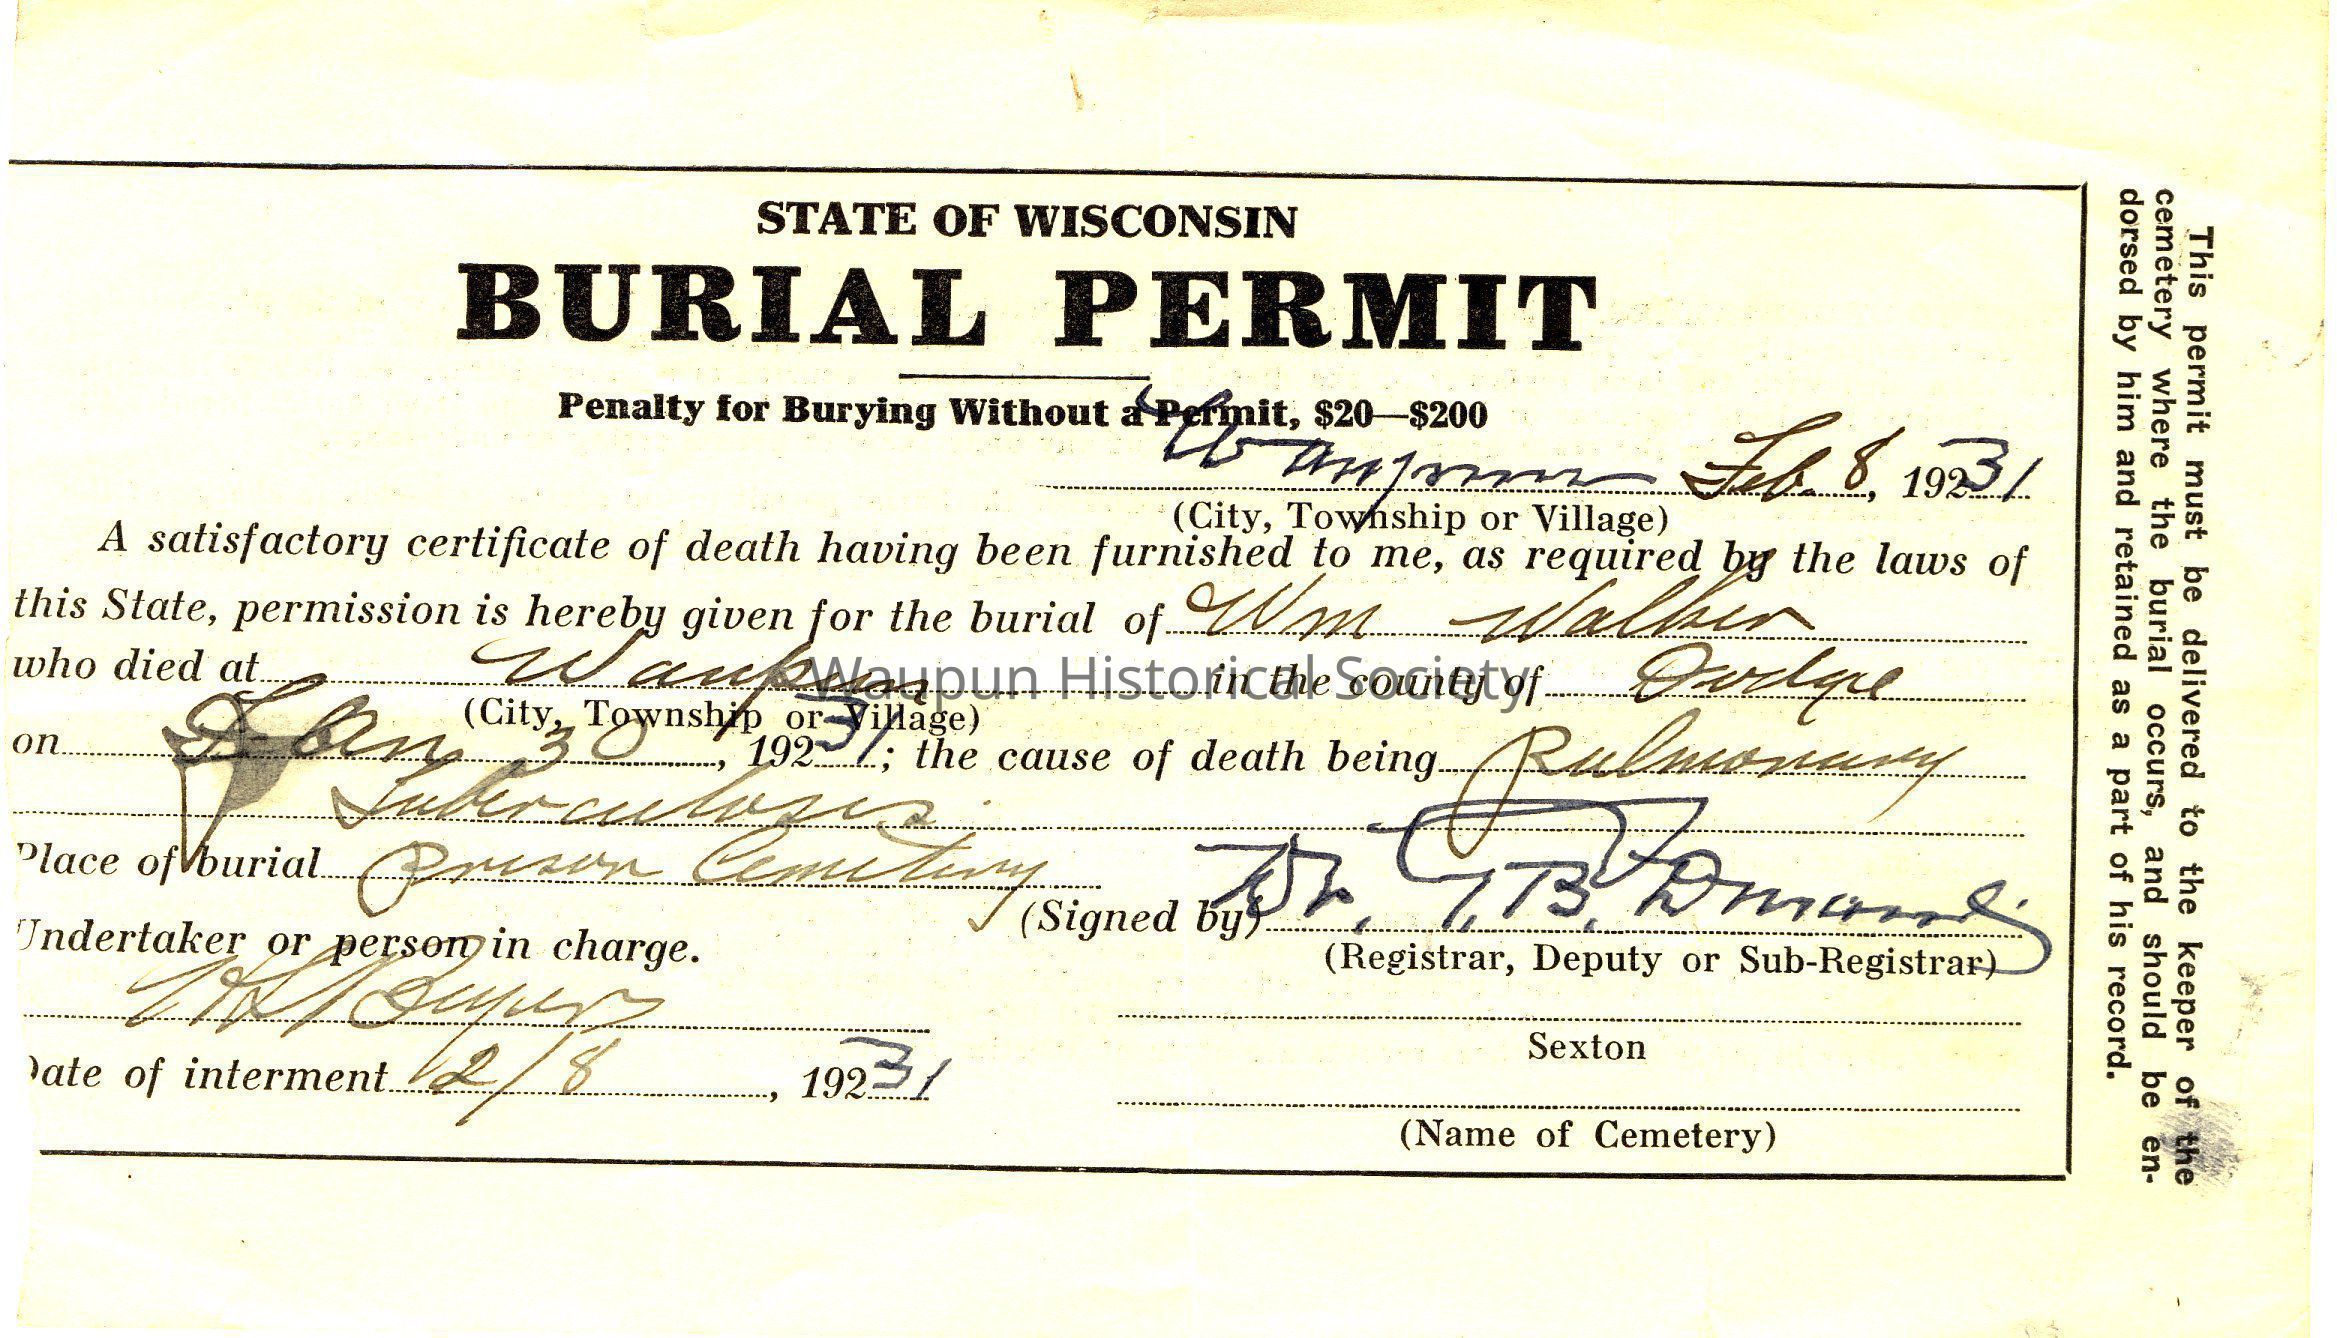 STATE OF WISCONSIN
BURIAL PERMIT
Penalty for Burying Without a Permit, $20—$200
Waupun Feb. 8, 19231
(City, Township or Village)
A satisfactory certificate of death having been furnished to me, as required by the laws of
this State, permission is hereby given for the burial of Wm Walker
who died at Waupun in the county of Dodge
(City, Township or Village)
on Jan. 30, 19231; the cause of death being Pulmonary
Tuberculosis.
Place of burial Prison Cemetery
(Signed by) Dr. T. B.
(Registrar, Deputy or Sub-Registrar)
Undertaker or person in charge.
Date of interment 2/8, 19231
Sexton
(Name of Cemetery)
This permit must be delivered to the keeper of the
cemetery where the burial occurs, and should be en-
dorsed by him and retained as a part of his record.
Waupun Historical Society